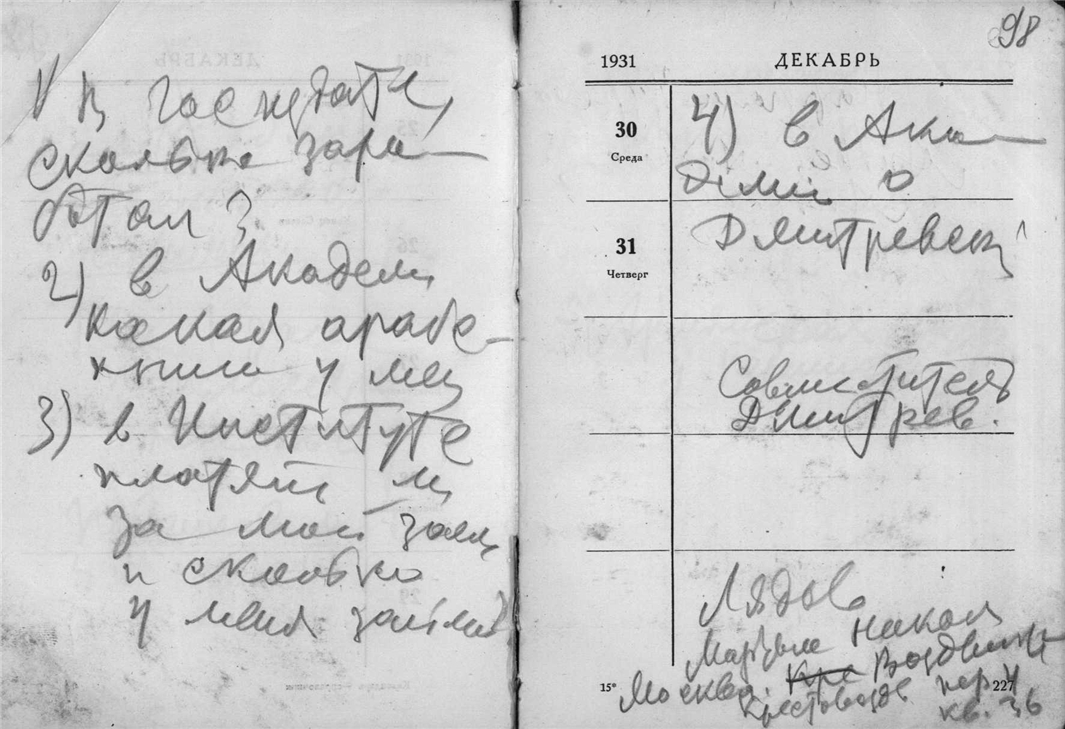 1 в Госиздате,
сколько зара-
ботал ?
2) в Академ
какая арабс-
книга у мен
3) в Институте
платят ли
за мой заем
и сколько
у меня займов
98
1931 ДЕКАБРЬ
30
Среда
4) в Ака-
демии о
31
Четверг
Дмитревск
Совместитель
Дмитрев.
Лядов
Мартын Никол
Москва. Воздвиженк
Крестовоздв пер 4
кв. 36
15* 227